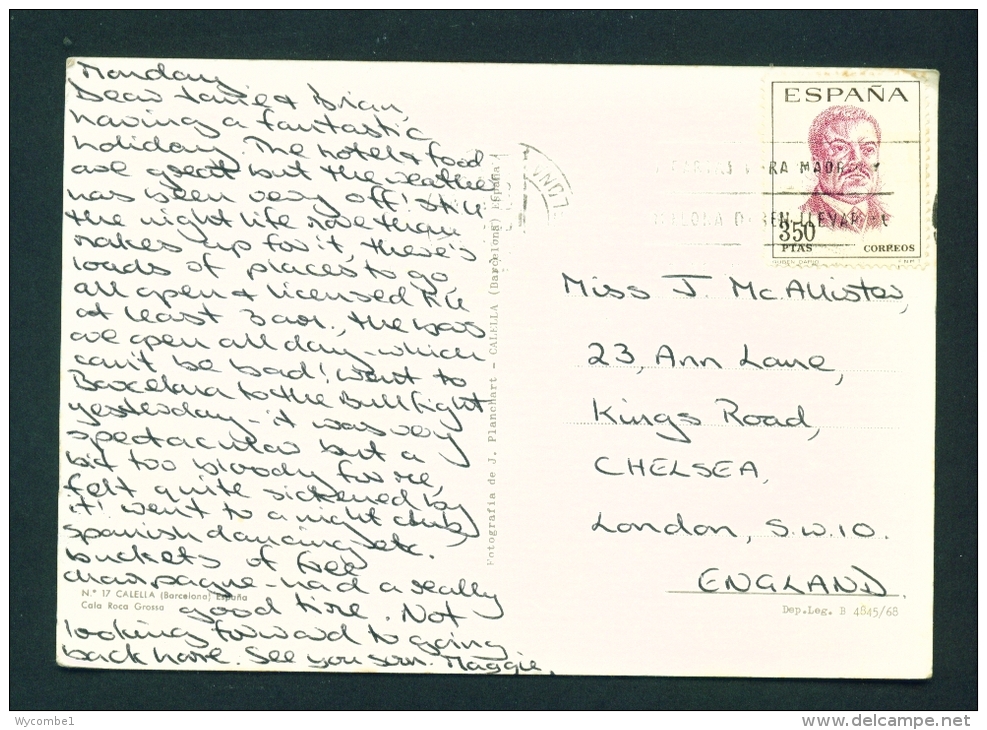 Monday
Dear Janie & Brian,
having a fantastic
holiday. The hotel & food
are great but the weather
has been very off! Still
the night life more than
makes up for it, there's
loads of places to go,
all open & licensed till
at least 3am., the bars
are open all day - which
can't be bad! Went to
Barcelona to the Bullfight
yesterday - it was very
spectacular but a
bit too bloody for me,
felt quite sickened by
it! Went to a night club,
spanish dancing etc.
buckets of free
champagne - had a really
good time. Not
looking forward to going
back home. See you soon. Maggie.
N.º 17 CALELLA (Barcelona) España
Cala Roca Grossa
Fotografía de J. Planchart - CALELLA (Barcelona) España
ESPAÑA
350
PTAS
CORREOS
LLEVAR
Miss J. McAllister,
23, Ann Lane,
Kings Road,
CHELSEA,
London, S.W.10.
ENGLAND.
Dep.Leg. B 4845/68
Wycombe1
www.delcampe.net